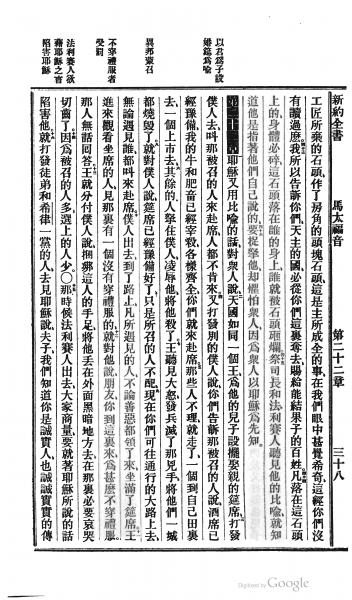 新約全書 馬太福音 第二十二章 三十八
工匠所棄的石頭、作了房角的頭塊石頭、這是主所成全的事在我們眼中甚覺希奇、這經你們沒
有讀過麽我所以告訴你們、天主的國必從你們這裏奪去、賜給能結果子的百姓凡落在這石頭
上的身體必碎這石頭落在誰的身上就被石頭砸爛、祭司長和法利賽人聽見他的比喻就知
道他是指著他們自己說的要捉拏他、卻懼怕衆人因爲衆人以耶穌爲先知
第二十二章耶穌又用比喻的話對衆人說、天國如同一個王爲他的兒子設擺娶親的筵席打發
僕人去叫那被召的人來赴席人都不肯來又打發別的僕人說你們告訴那被召的人說酒席已
經豫備我的牛和肥畜已經宰殺各樣齊全你們就來赴席那些人不理就走了一個到自己田裏
去、一個上市去其餘的人拏住僕人凌辱他將他殺了王聽見大怒發兵滅了那兇手將他們一城
都燒毀了就對僕人說筵席已經豫備好了只是所召的人不配現在你們可往通行的大路上去
無論遇見誰都叫來赴席僕人出去到了路上凡所遇見的人不論善惡都領了來坐滿了筵席王
進來觀看坐席的人見那裏有一個沒有穿禮服的就對他說朋友你到這裏來爲甚麽不穿禮服
那人無話回答王就分付僕人說捆綁這人的手足將他丟在外面黑暗地方去在那裏必要哀哭
切齒了因爲被召的人多選上的人少○那時候法利賽人出去大家商量要就著耶穌所說的話
陷害他就打發徒弟和希律一黨的人去見耶穌說夫子我們知道你是誠實人也誠誠實實的傳
以君爲子設
婚筵爲喻
異邦蒙召
不穿禮服者
受罰
法利賽人欲
藉耶穌之言
陷害耶穌
Digitized by Google